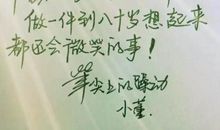 做一件到八十岁想起来
都还会微笑的事!
笔尖上的躁动
小董